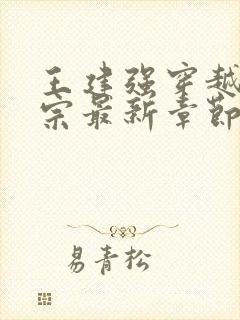 王建强穿越
宗最新章节
易青松